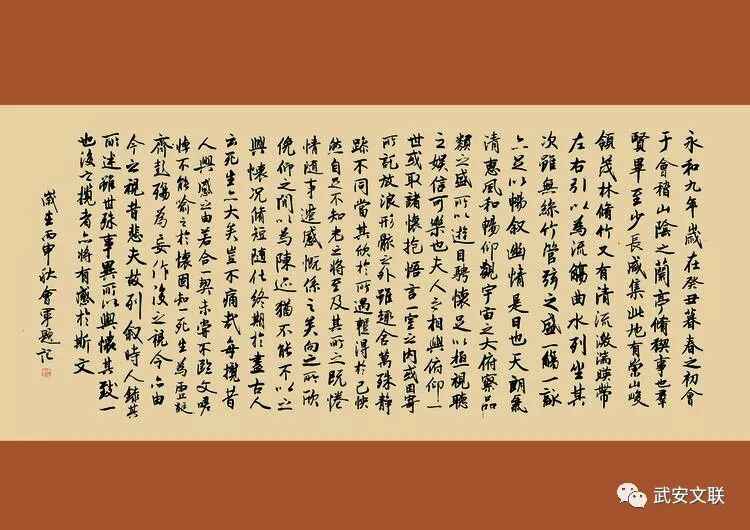 永和九年歲在癸丑暮春之初會
于會稽山陰之蘭亭脩稧事也羣
賢畢至少長咸集此地有崇山峻
領茂林脩竹又有清流激湍暎帶
左右引以為流觴曲水列坐其
次雖無絲竹管弦之盛一觴一詠
亦足以暢敘幽情是日也天朗氣
清惠風和暢仰觀宇宙之大俯察品
類之盛所以遊目騁懷足以極視聽
之娛信可樂也夫人之相與俯仰一
世或取諸懷抱悟言一室之內或因寄
所託放浪形骸之外雖趣舍萬殊靜
躁不同當其欣於所遇蹔得於己快
然自足不知老之將至及其所之既惓
情隨事遷感慨係之矣向之所欣
俛仰之間以為陳迹猶不能不以之
興懷況脩短隨化終期於盡古人
云死生亦大矣豈不痛哉每攬昔
人興感之由若合一契未嘗不臨文嗟
悼不能喻之於懷固知一死生為虛誕
齊彭殤為妄作後之視今亦由
今之視昔悲夫故列敘時人錄其
所述雖世殊事異所以興懷其致一
也後之攬者亦將有感於斯文
歲在丙申秋會軍題記
武安文联